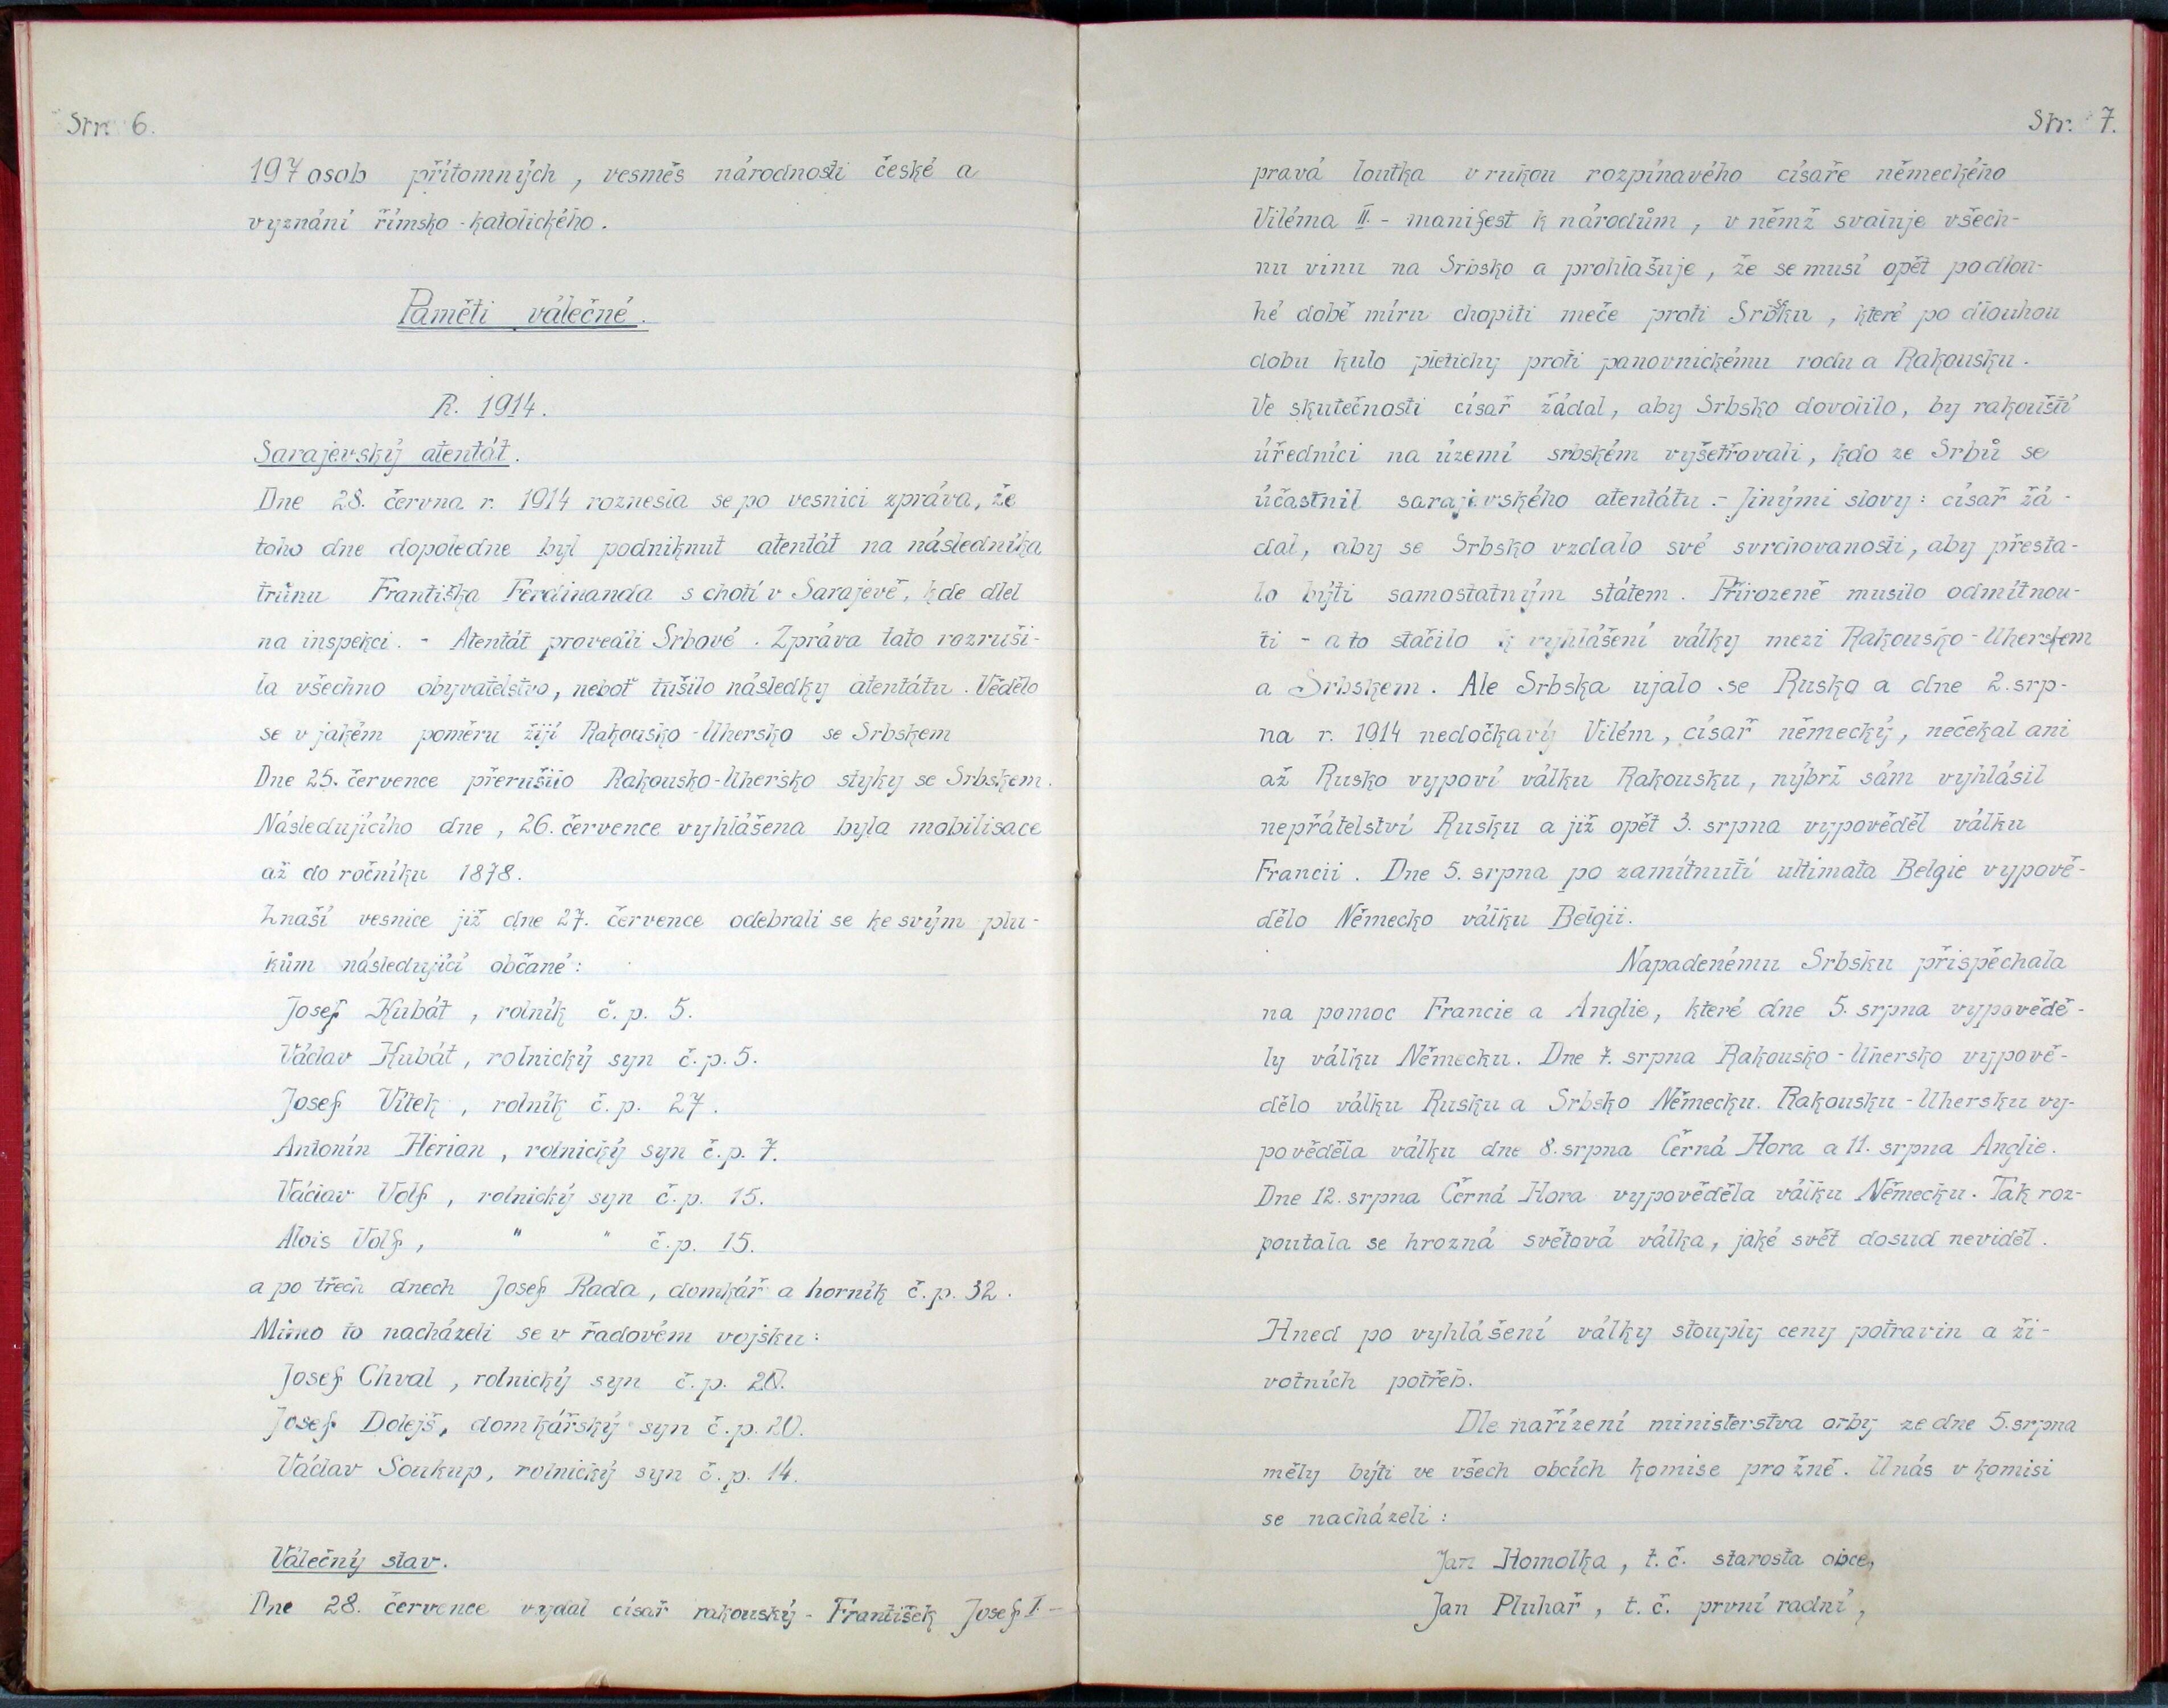 Str. 6.
197 osob přítomných, vesměs národnosti české a
vyznání římsko-katolického.
Paměti válečné.
R. 1914.
Sarajevský atentát.
Dne 28. června r. 1914 roznesla se po vesnici zpráva, že
toho dne dopoledne byl podniknut atentát na následníka
trůnu Františka Ferdinanda s chotí v Sarajevě, kde dlel
na inspekci. - Atentát provedli Srbové. Zpráva tato rozruši-
la všechno obyvatelstvo, neboť tušilo následky atentátu. Vědělo
se v jakém poměru žijí Rakousko-Uhersko se Srbskem
Dne 25. července přerušilo Rakousko-Uhersko styky se Srbskem.
Následujícího dne, 26. července vyhlášena byla mobilisace
až do ročníku 1878.
Z naší vesnice již dne 27. července odebrali se ke svým plu-
kům následující občané:
Josef Kubát, rolník č. p. 5.
Václav Kubát, rolnický syn č. p. 5.
Josef Vítek, rolník č. p. 27.
Antonín Herian, rolnický syn č. p. 7.
Václav Volf, rolnický syn č. p. 15.
Alois Volf, " " č. p. 15.
a po třech dnech Josef Rada, domkář a horník č. p. 32.
Mimo to nacházeli se v řadovém vojsku:
Josef Chval, rolnický syn č. p. 20.
Josef Dolejš, domkářský syn č. p. 20.
Václav Soukup, rolnický syn č. p. 14.
Válečný stav.
Dne 28. července vydal císař rakouský - František Josef I. -
Str. 7.
pravá loutka v rukou rozpínavého císaře německého
Viléma II. - manifest k národům, v němž svaluje všech-
nu vinu na Srbsko a prohlašuje, že se musí opět po dlou-
hé době míru chopiti meče proti Srbsku, které po dlouhou
dobu kulo pletichy proti panovnickému rodu a Rakousku.
Ve skutečnosti císař žádal, aby Srbsko dovolilo, by rakouští
úředníci na území srbském vyšetřovali, kdo ze Srbů se
účastnil sarajevského atentátu. - Jinými slovy: císař žá-
dal, aby se Srbsko vzdalo své svrchovanosti, aby přesta-
lo býti samostatným státem. Přirozeně musilo odmítnou-
ti - a to stačilo k vyhlášení války mezi Rakousko-Uherskem
a Srbskem. Ale Srbska ujalo se Rusko a dne 2. srp-
na r. 1914 nedočkavý Vilém, císař německý, nečekal ani
až Rusko vypoví válku Rakousku, nýbrž sám vyhlásil
nepřátelství Rusku a již opět 3. srpna vypověděl válku
Francii. Dne 5. srpna po zamítnutí ultimata Belgie vypově-
dělo Německo válku Belgii.
Napadenému Srbsku přispěchala
na pomoc Francie a Anglie, které dne 5. srpna vypovědě-
ly válku Německu. Dne 7. srpna Rakousko-Uhersko vypově-
dělo válku Rusku a Srbsko Německu. Rakousku-Uhersku vy-
pověděla válku dne 8. srpna Černá Hora a 11. srpna Anglie.
Dne 12. srpna Černá Hora vypověděla válku Německu. Tak roz-
poutala se hrozná světová válka, jaké svět dosud neviděl.
Hned po vyhlášení války stouply ceny potravin a ži-
votních potřeb.
Dle nařízení ministerstva orby ze dne 5. srpna
měly býti ve všech obcích komise pro žně. U nás v komisi
se nacházeli:
Jan Homolka, t. č. starosta obce,
Jan Pluhař, t. č. první radní,